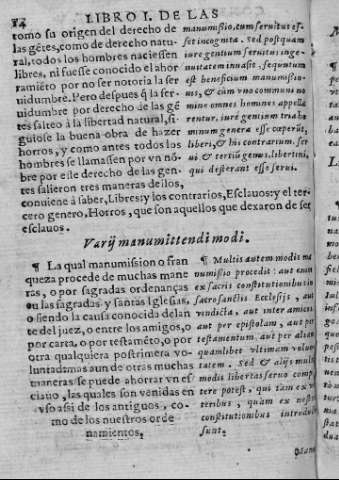 14 LIBRO I. DE LAS
como su origen del derecho de
las gẽtes, como de derecho natu-
ral, todos los hombres naciessen
libres, ni fuesse conocido el ahor
ramiẽto por no ser notoria la ser
uidumbre. Pero despues q̃ la ser-
uidumbre por derecho de las gẽ
tes salteo à la libertad natural, si-
guiose la buena obra de hazer
horros, y como antes todos los
hombres se llamassen por vn nõ-
bre por este derecho de las gen-
tes salieron tres maneras dellos,
conuiene à saber, Libres: y los contrarios, Esclauos: y el ter-
cero genero, Horros, que son aquellos que dexaron de ser
esclauos.
manumissio, tum seruitus es-
set incognita. Sed postquam
iure gentium seruitus inge-
nuitatem inuasit, sequutum
est beneficium manumissio-
nis, & cùm vno communi no
mine omnes homines appella
rentur, iure gentium tria ho
minum genera esse cœperũt,
liberi, & his contrarium, ser
ui, & tertiũ genus, libertini,
qui desierant esse serui.
Varij manumittendi modi.
¶ La qual manumission o fran
queza procede de muchas mane
ras, o por sagradas ordenanças
en las sagradas y santas Iglesias,
o siendo la causa conocida delan
te del juez, o entre los amigos, o
por carta, o por testamẽto, o por
otra qualquiera postrimera vo-
luntad: mas aun de otras muchas
maneras se puede ahorrar vn es-
clauo, las quales son venidas en
vso assi de los antiguos, co-
mo de los nuestros orde
namientos.
¶ Multis autem modis ma
numissio procedit: aut enim
ex sacris constitutionibus in
sacrosanctis Ecclesijs, aut
vindicta, aut inter amicos
aut per epistolam, aut per
testamentum, aut per aliam
quamlibet vltimam volun
tatem. Sed & alijs multis
modis libertas seruo compe
tere potest, qui tam ex ve
teribus, quàm ex nostris
constitutionibus introducti
sunt.